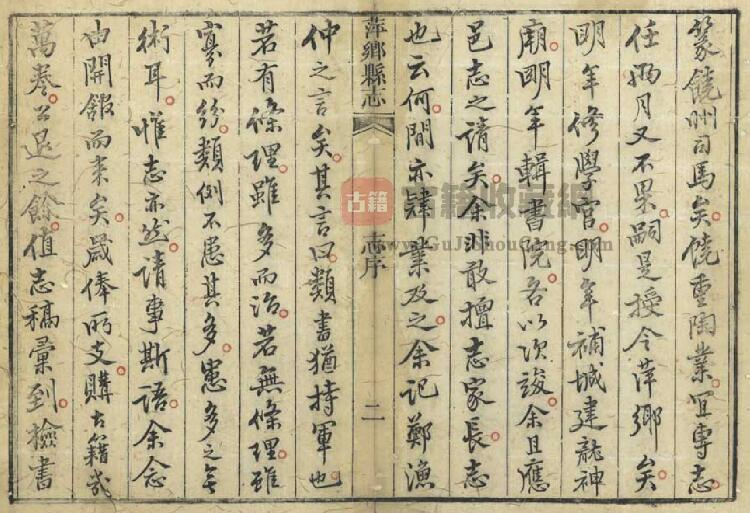 篆饒州司馬矣饒重陶業宜專志
任月又不果嗣是授令萍鄉矣
明年修學宮明年補城建龍神
廟明年輯書院各以次竣余且應
邑志之請矣余非敢擅志家長志
也云何間亦肄業及之余記鄭漁
萍鄉縣志
志序
二
仲之言矣其言曰類書猶持軍也
若有條理雖多而治若無條理雖
寡而紛類例不患其多患多之無
術耳惟志亦然請事斯語余念
由開館而来矣歲俸所支購古籍幾
萬卷公退之餘值志稿彙到撿書
古籍
古籍收藏網
www.GuJiShouCang.com